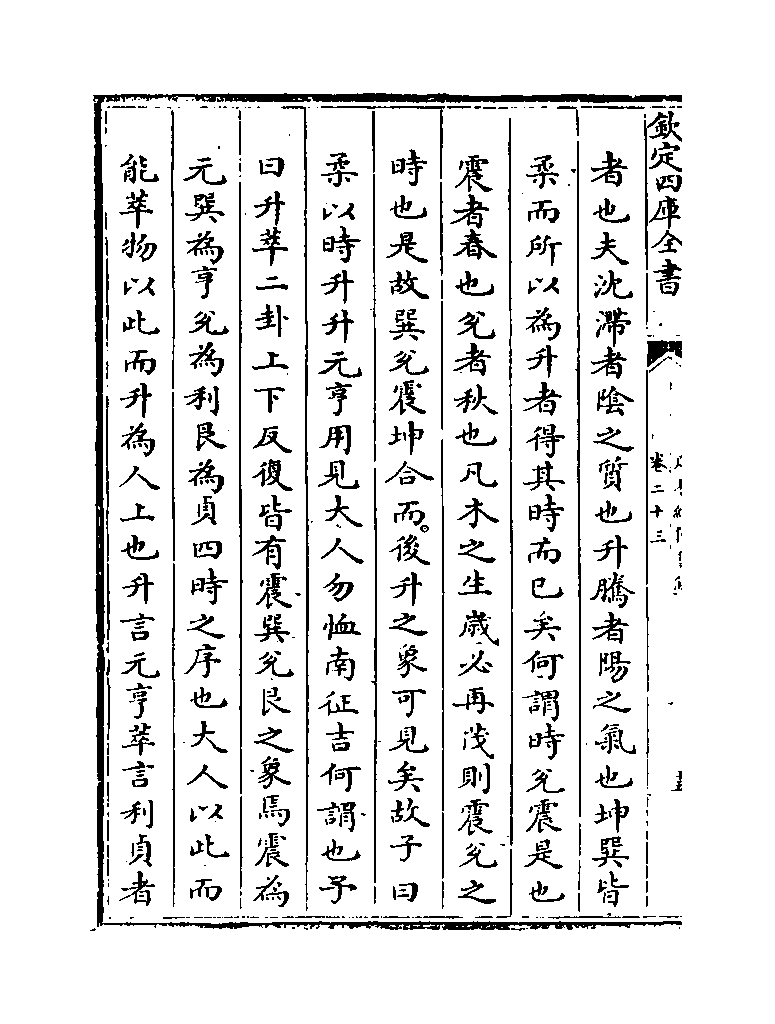 欽定四庫全書
卷二十三
者也夫沈滯者陰之質也升騰者陽之氣也坤巽皆
柔而所以為升者得其時而已矣何謂時兊震是也
震者春也兊者秋也凡木之生歲必再茂則震兊之
時也是故巽兊震坤合而後升之象可見矣故子曰
柔以時升升元亨用見大人勿恤南征吉何謂也予
曰升萃二卦上下反復皆有震巽兊艮之象焉震為
元巽為亨兊為利艮為貞四時之序也大人以此而
能萃物以此而升為人上也升言元亨萃言利貞者